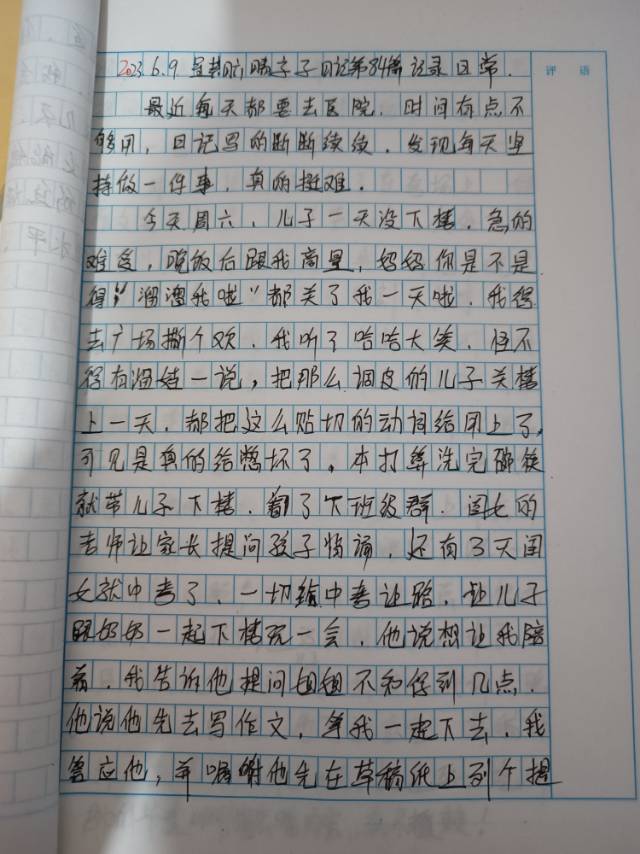 2023.6.9 星期六 晴 亲子日记第84篇 记录日常. 评 语
最近每天都要去医院，时间有点不
够用，日记写的断断续续，发现每天坚
持做一件事，真的挺难.
今天周六，儿子一天没下楼，急的
难受，晚饭后跟我商量，妈妈你是不是
得"溜溜我啦"都关了我一天啦，我得
去广场撕个欢，我听了哈哈大笑，怪不
得有溜娃一说，把那么调皮的儿子关楼
上一天，都把这么贴切的动词给用上了，
可见是真的给憋坏了。本打算洗完碗筷
就带儿子下楼，看了下班级群，闺女的
老师让家长提问孩子背诵，还有3天闺
女就中考了，一切给中考让路，让儿子
跟奶奶一起下楼玩一会，他说想让我陪
着，我告诉他提问姐姐不知得到几点.
他说他先去写作文，等我一起下去，我
答应他，并嘱咐他先在草稿纸上列个提